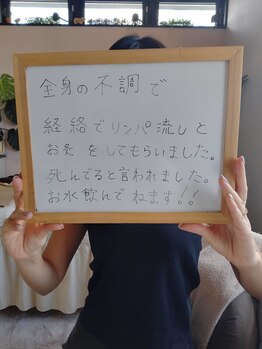 全身の不調で
経絡でリンパ流しと
お灸をしてもらいました。
死んでると言われました。
お水飲んでねます!!